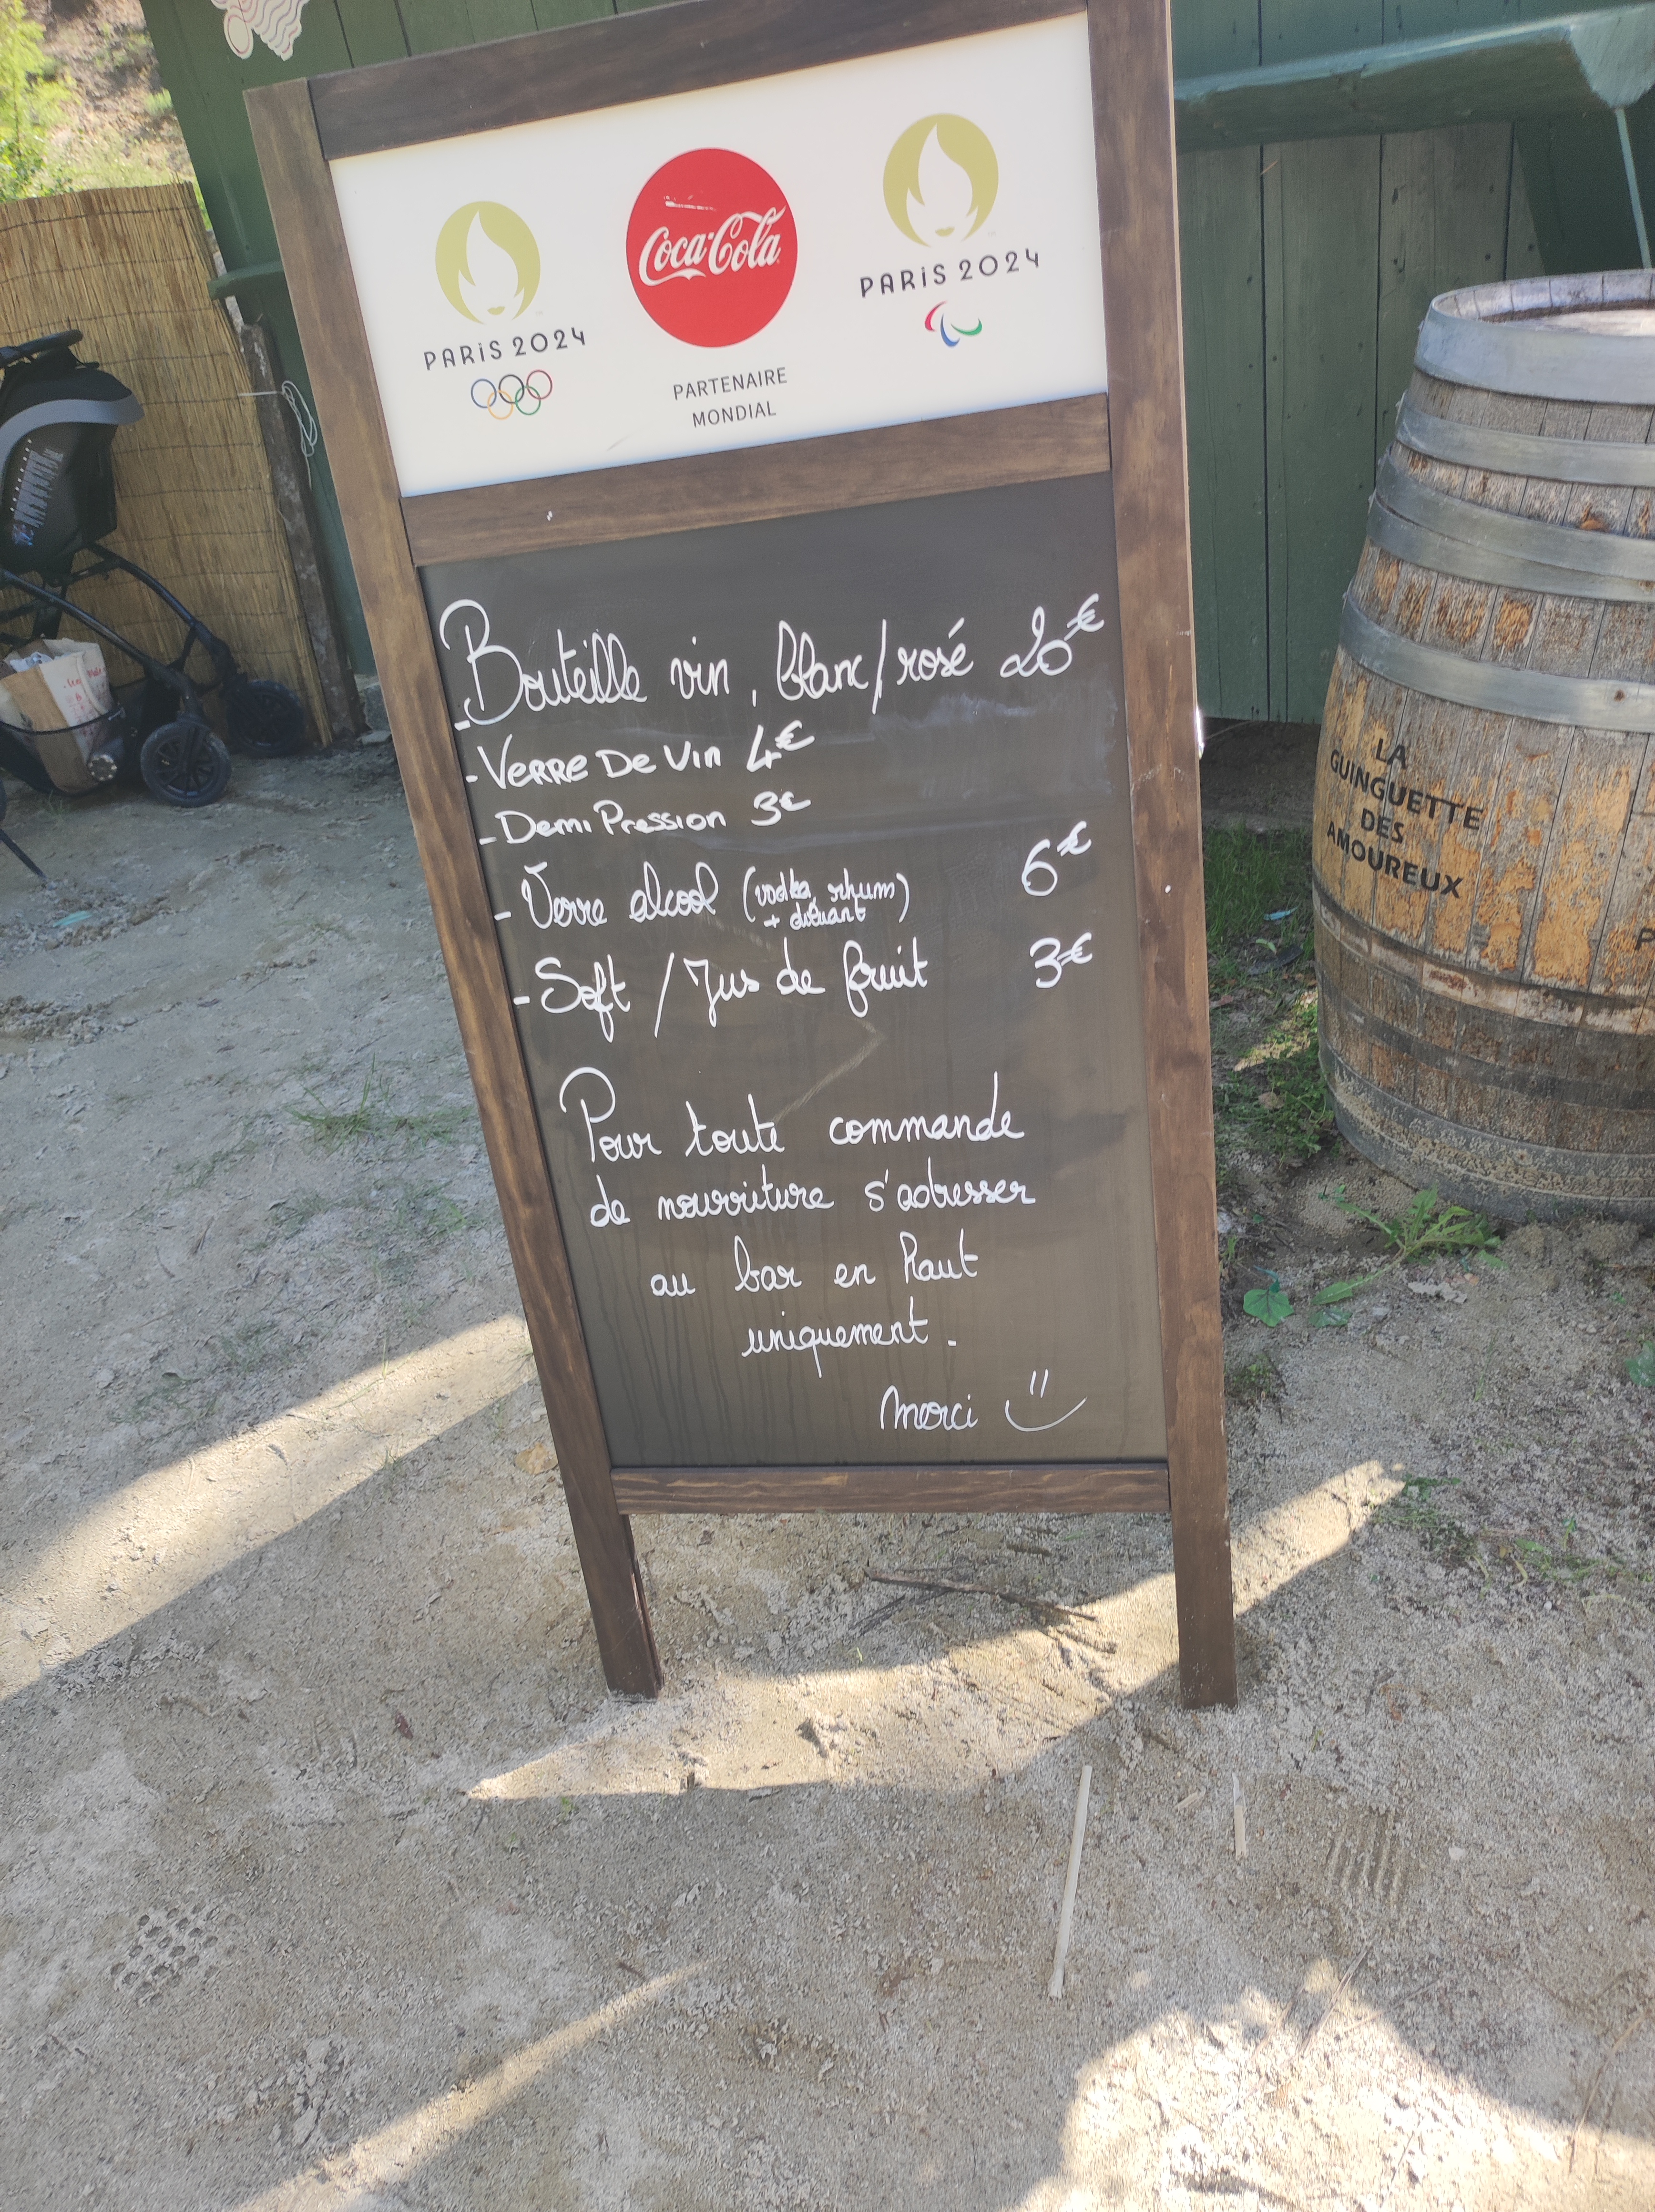 PARIS 2024
Coca-Cola
PARTENAIRE
MONDIAL
PARIS 2024
- Bouteille vin, blanc/rosé 20€
- VERRE DE VIN 4€
- Demi Pression 3€
- Verre alcool (vodka, rhum) 6€
+ diluant
- Soft / Jus de fruit 3€
Pour toute commande
de nourriture s'adresser
au bar en haut
uniquement.
Merci
LA
GUINGUETTE
DES
AMOUREUX